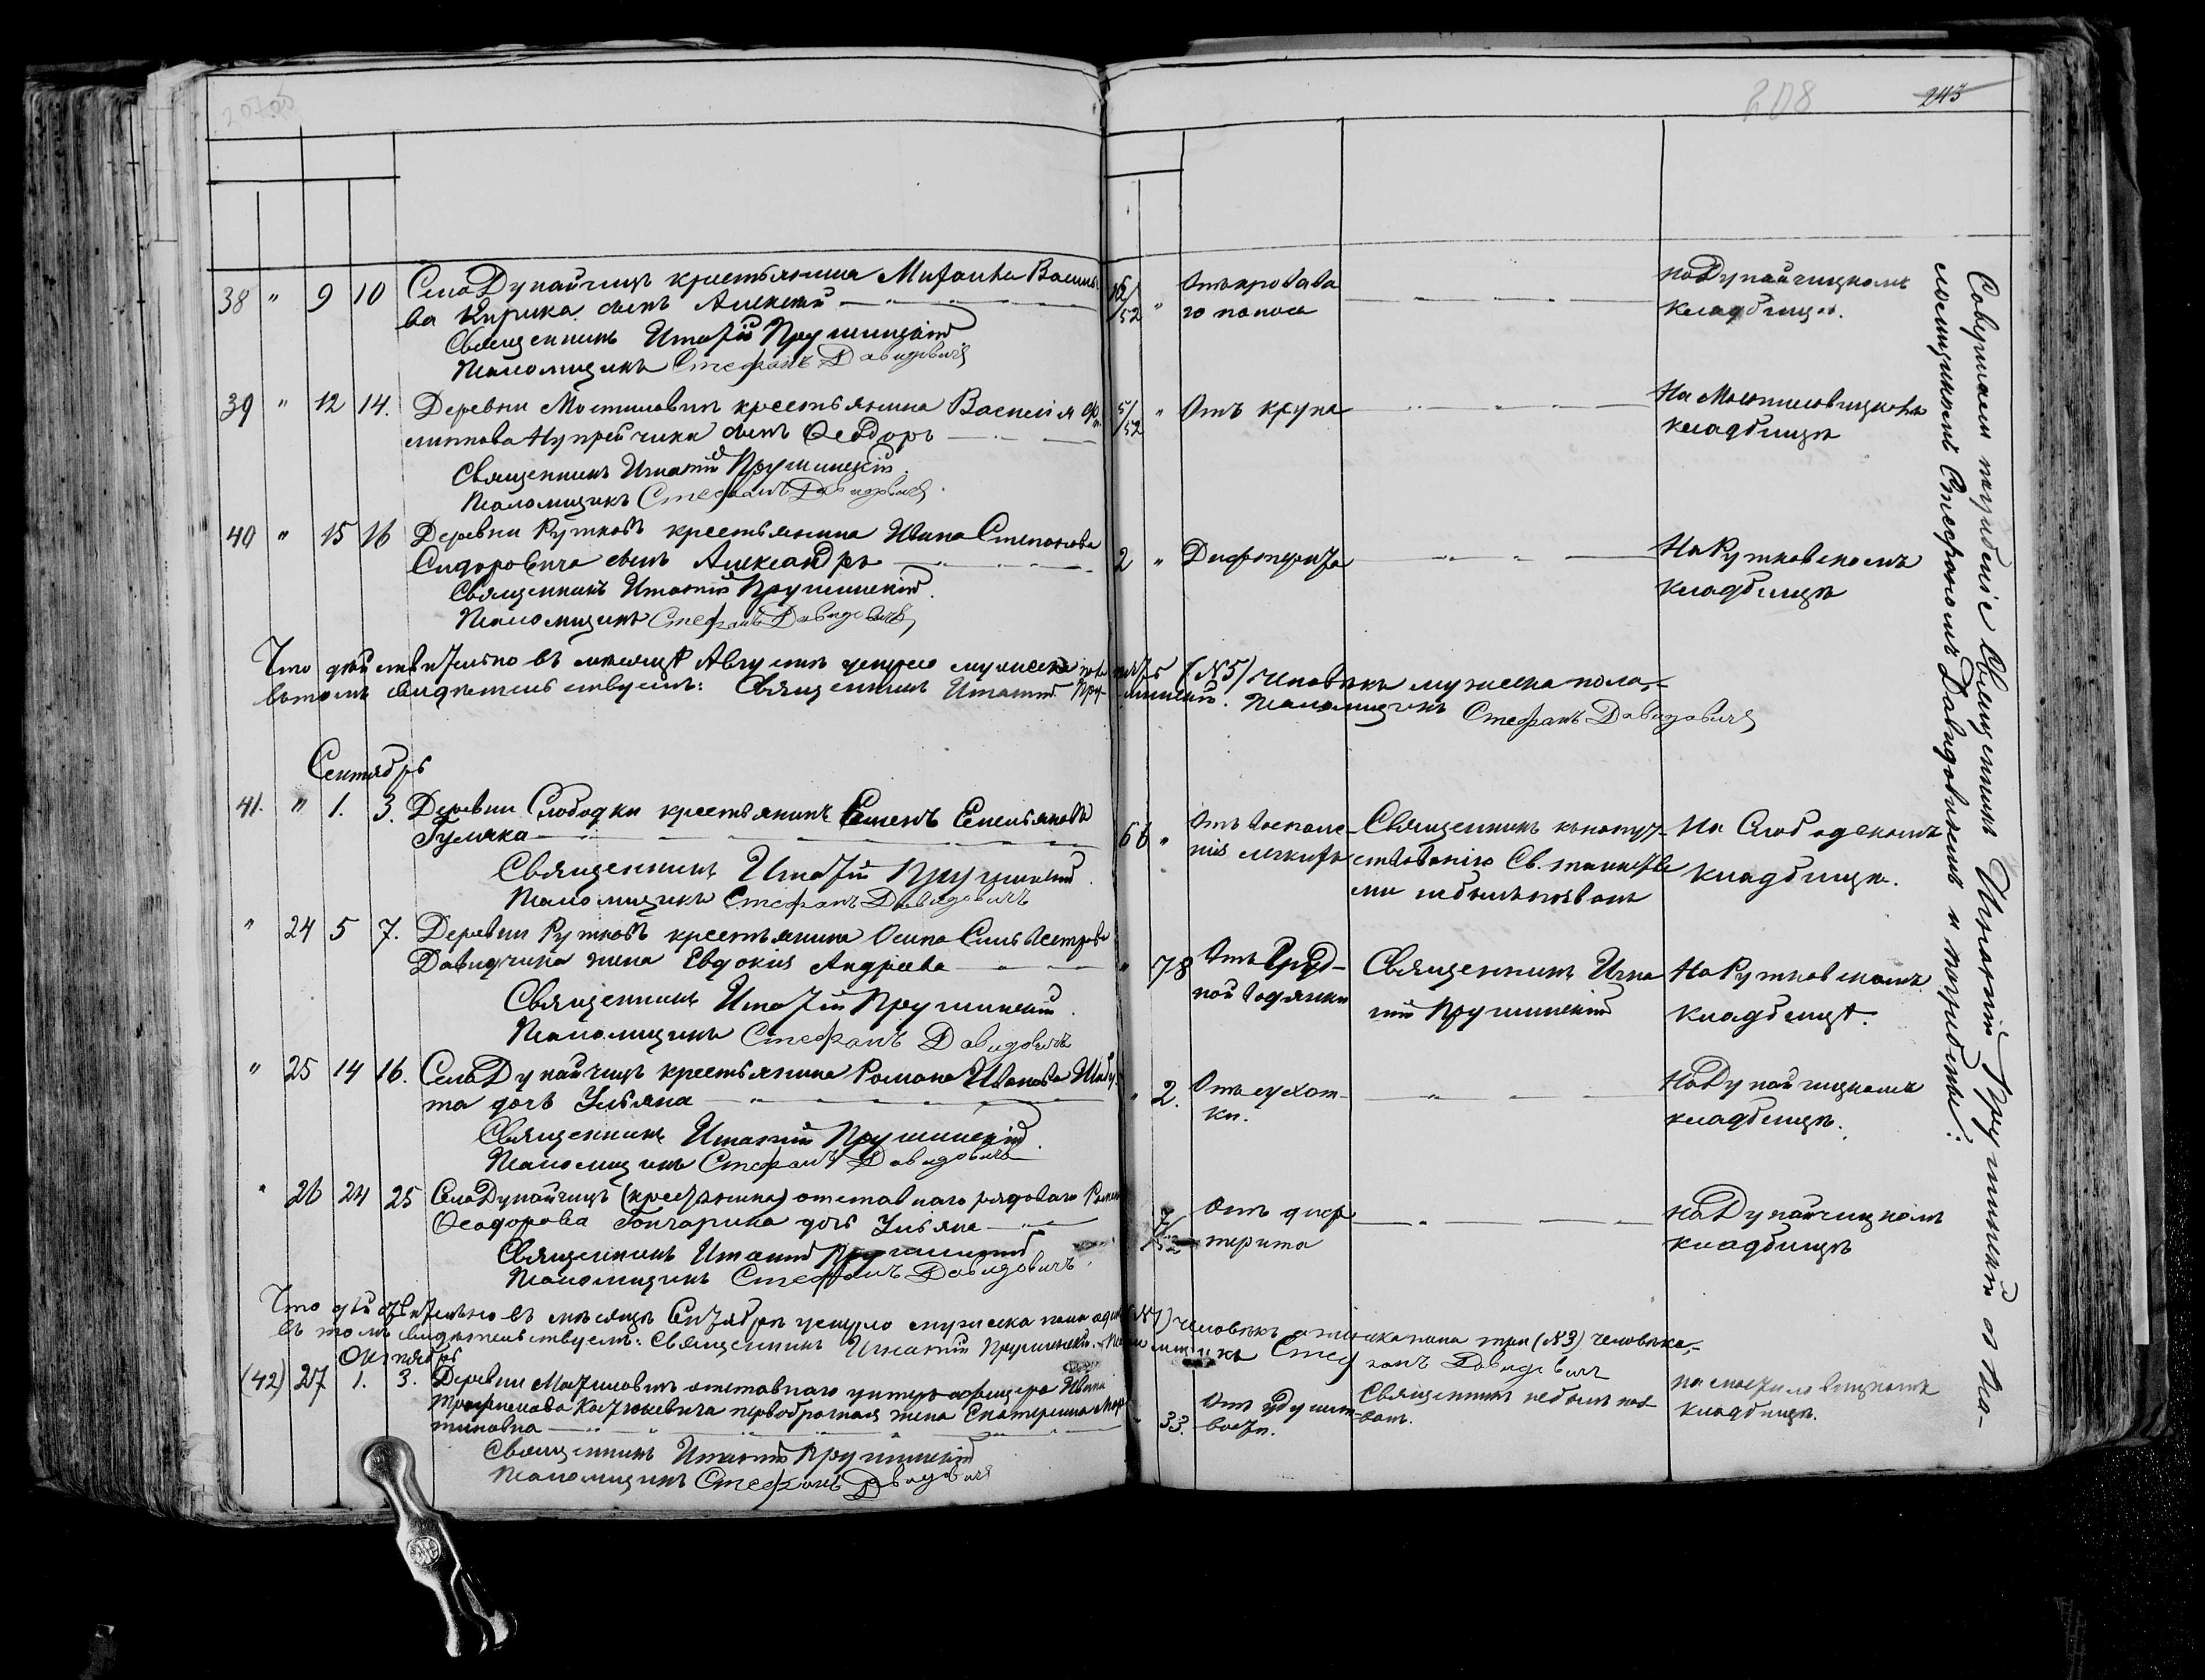 208
243
38 " 9 10 Села Дунайчицъ крестьянина Михаила Василь-
ва Кирика сынъ Алексѣй
Священникъ Игнатій Прушинскій
Псаломщикъ Стефанъ Давидовичъ
/52 " Отъ кровава
го поноса
на Дунайчицкомъ
кладбищѣ.
39 " 12 14. Деревни Мостиловичъ крестьянина Василія
сынъ Ѳеодоръ
Священникъ Игнатій Прушинскій.
Псаломщикъ Стефанъ Давидовичъ
5/52 " Отъ крупа
На Мостиловицкомъ
кладбищѣ
40 " 15 16 Деревни Рутковъ крестьянина Ивана Степанова
Сидоровича сынъ Александръ
Священникъ Игнатій Прушинскій.
Псаломщикъ Стефанъ Давидовичъ
2 " Дифтерита
На Рутковскомъ
кладбищѣ
Что дѣйствительно въ мѣсяцѣ Августѣ умерло мужеска пола пять (№5) человѣкъ мужеска пола,
въ томъ свидѣтельствуемъ: Священникъ Игнатій Прушинскій. Псаломщикъ Стефанъ Давидовичъ
Сентябрь
41. " 1. 3. Деревни Слободки крестьянинъ Семенъ Емельяновъ
Гуляка
Священникъ Игнатій Прушинскій.
Псаломщикъ Стефанъ Давидовичъ
66 " Отъ воспале-
нія легкихъ
Священникъ къ напут-
ствованію Св. таинства
ми небылъ позванъ
На Слободскомъ
кладбищѣ.
" 24 5 7. Деревни Рутковъ крестьянина Осипа Сильвестрова
Давидчика жена Евдокія Андреева
Священникъ Игнатій Прушинскій.
Псаломщикъ Стефанъ Давидовичъ
" 78 Отъ груд-
ной водянки
Священникъ Игна
тій Прушинскій
На Рутковскомъ
кладбищѣ.
" 25 14 16. Села Дунайчицъ крестьянина Романа Иванова
дочь Ульяна
Священникъ Игнатій Прушинскій.
Псаломщикъ Стефанъ Давидовичъ
" 2. Отъ сухот-
ки.
На Дунайчицкомъ
кладбищѣ.
" 26 24 25 Села Дунайчицъ (крестьянина) отставнаго рядоваго
Ѳеодорова Гончарика дочь Ульяна
Священникъ Игнатій Прушинскій
Псаломщикъ Стефанъ Давидовичъ.
Отъ диф
терита
на Дунайчицкомъ
кладбищѣ
Что дѣйствительно въ мѣсяцѣ Сентябрѣ умерло мужеска пола одинъ (№1) человѣкъ а женска пола три (№3) человѣка,
въ томъ свидѣтельствуемъ: Священникъ Игнатій Прушинскій. Псаломщикъ Стефанъ Давидовичъ
Октябрь
(42) 27 1. 3. Деревни Мостиловичъ отставнаго унтеръ-офицера Ивана
Трофимова Костюкевича первобрачная жена Екатерина Мар
тиновна
Священникъ Игнатій Прушинскій
Псаломщикъ Стефанъ Давидовичъ
33. Отъ
Священникъ небылъ поз-
ванъ.
на мостиловицкомъ
кладбищѣ.
Совершали погребеніе Священникъ Игнатій Прушинскій съ Пса-
ломщикомъ Стефаномъ Давидовичемъ и погребены: